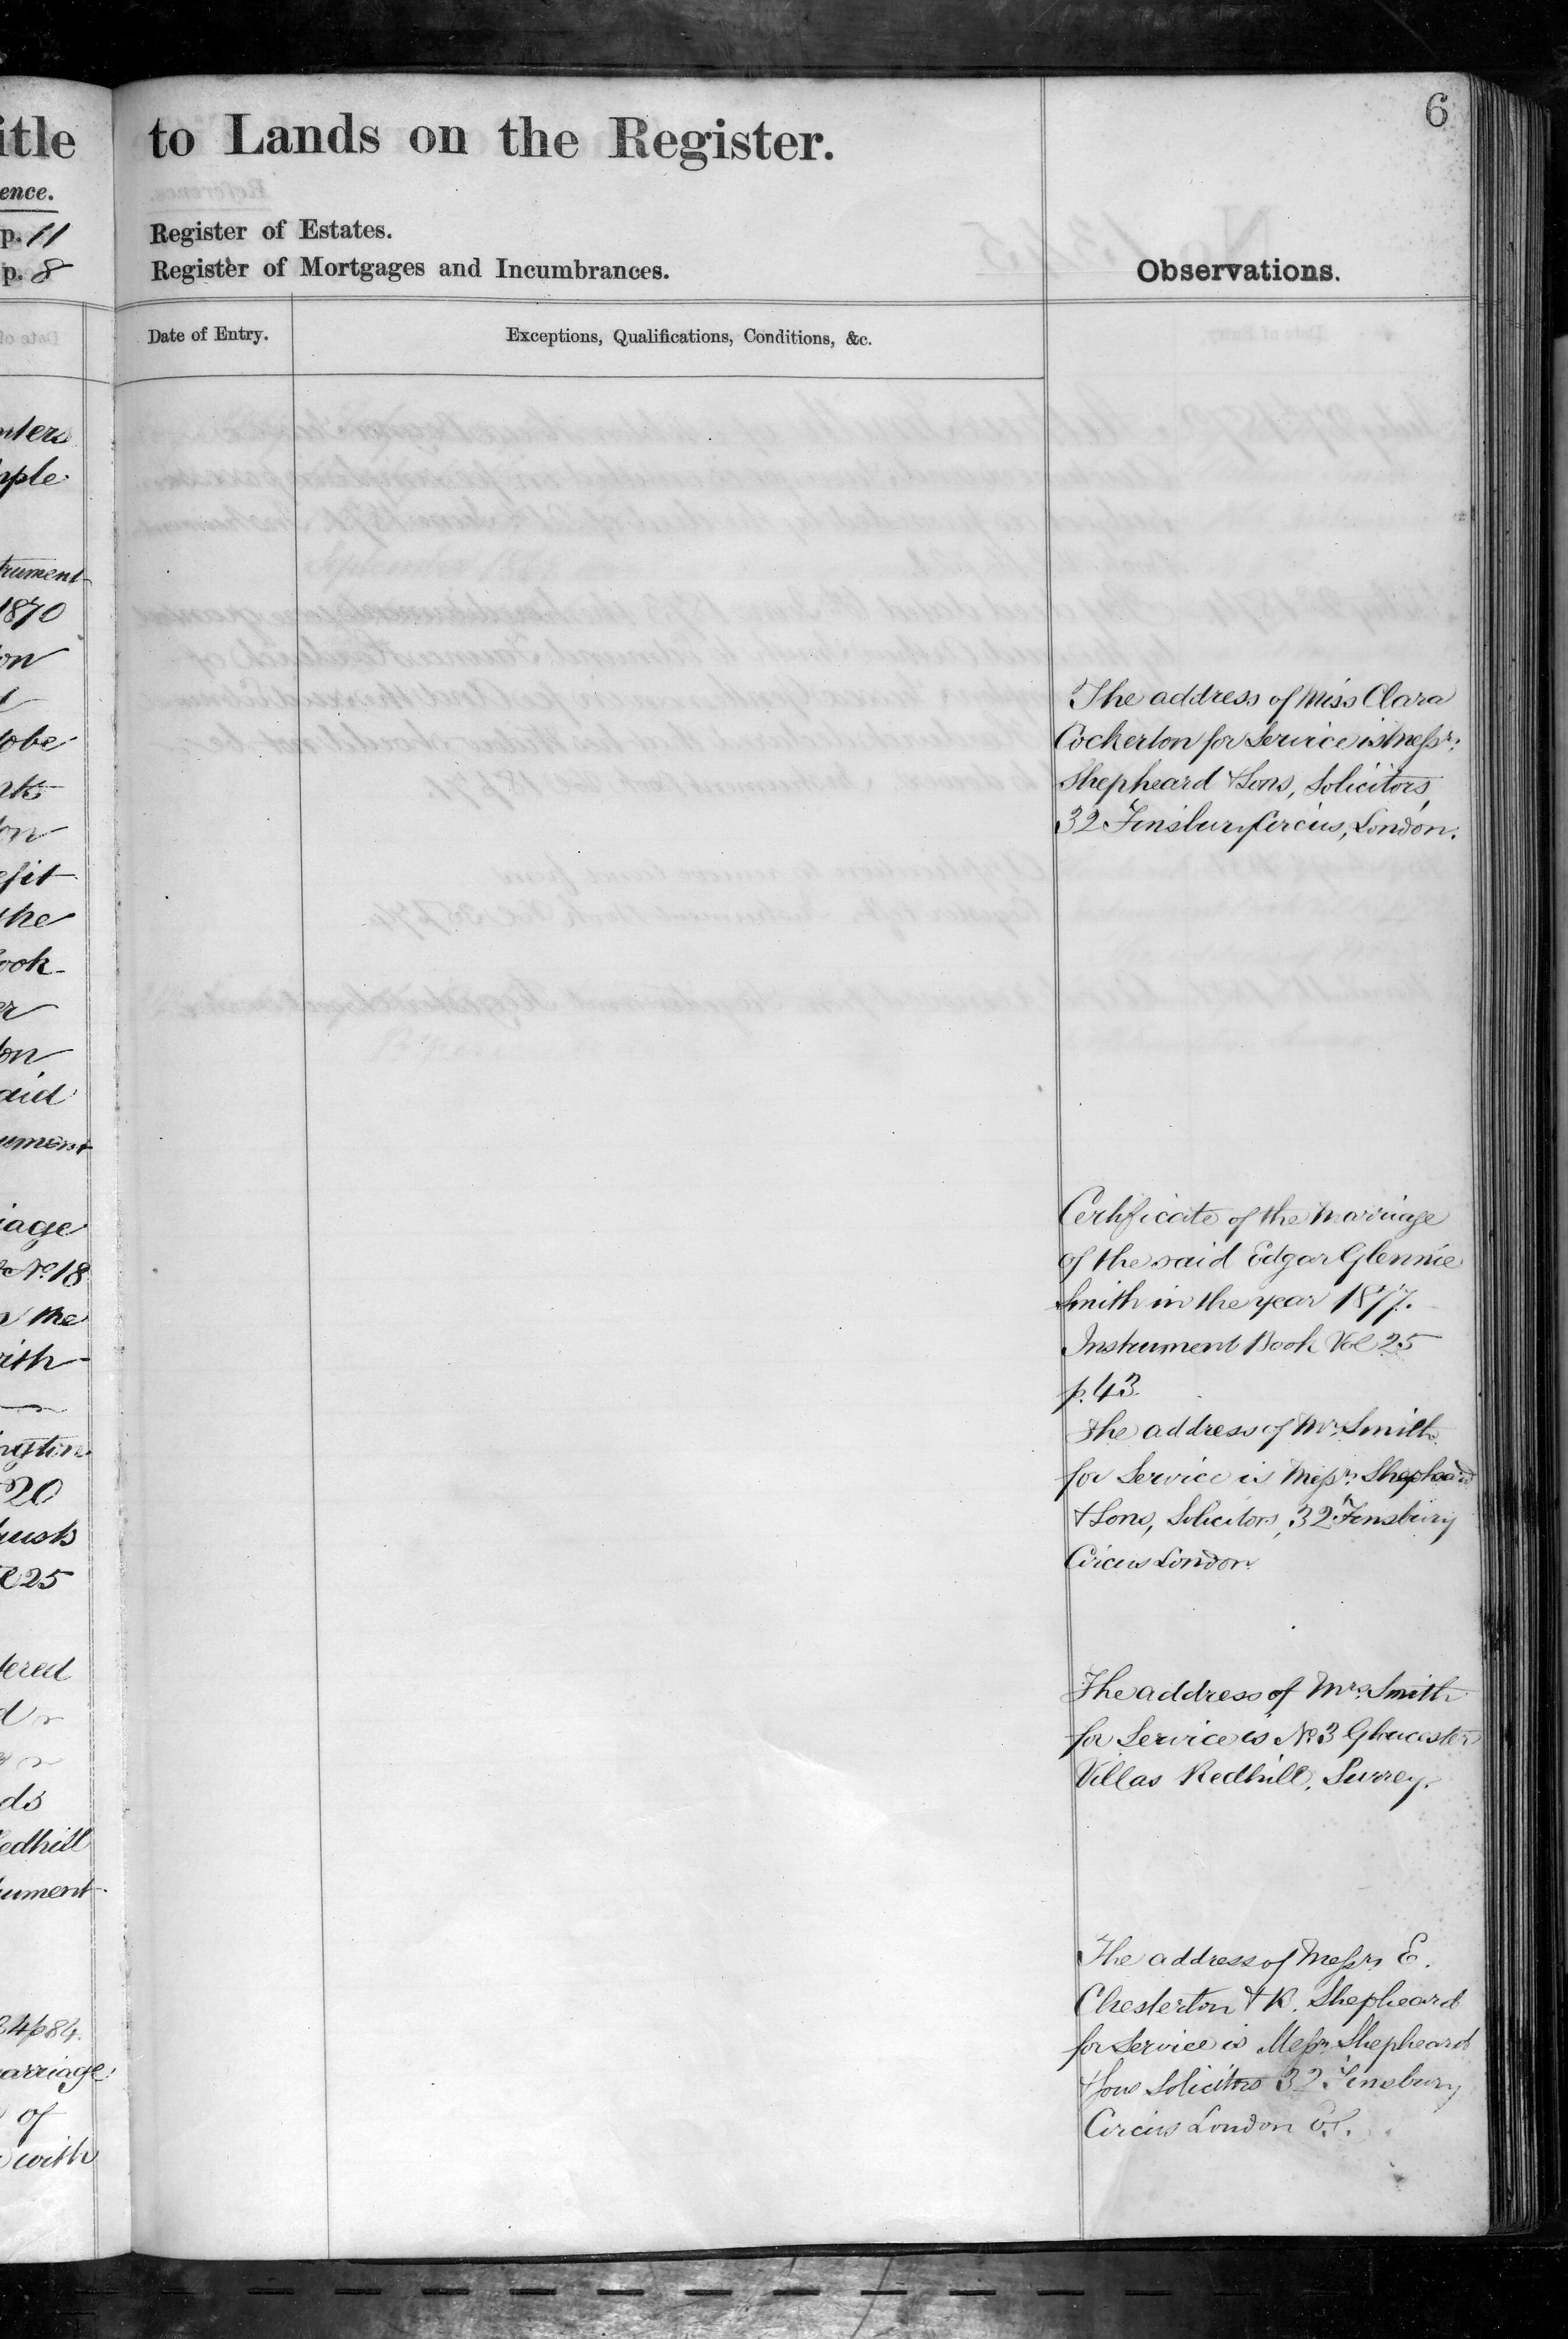 6
itle
to Lands on the Register.
ence.
p. 11
Register of Estates.
p. 8
Register of Mortgages and Incumbrances.
Observations.
Date of Entry.
Exceptions, Qualifications, Conditions, &c.
trument
1870
on
tobe
on
efit
the
ook
er
on
aid
ument
iage
No. 18
the
ith
20
rusts
25
ered
ds
edhill
ument
4 p 84.
arriage
of
with
The address of Miss Clara
Cockerton for Service is Messrs.
Shepheard & Sons, Solicitors,
32 Finsbury Circus, London.
Certificate of the Marriage
of the said Edgar Glennie
Smith in the year 1877.
Instrument Book Vol 25
p. 43.
The address of Mr. Smith
for Service is Messrs. Shepheard
& Sons, Solicitors, 32 Finsbury
Circus London.
The address of Mrs. Smith
for Service is No. 3 Gloucester
Villas Redhill, Surrey.
The address of Messrs E.
Chesterton & K. Shepheard
for Service is Messrs. Shepheard
& Sons Solicitors 32 Finsbury
Circus London